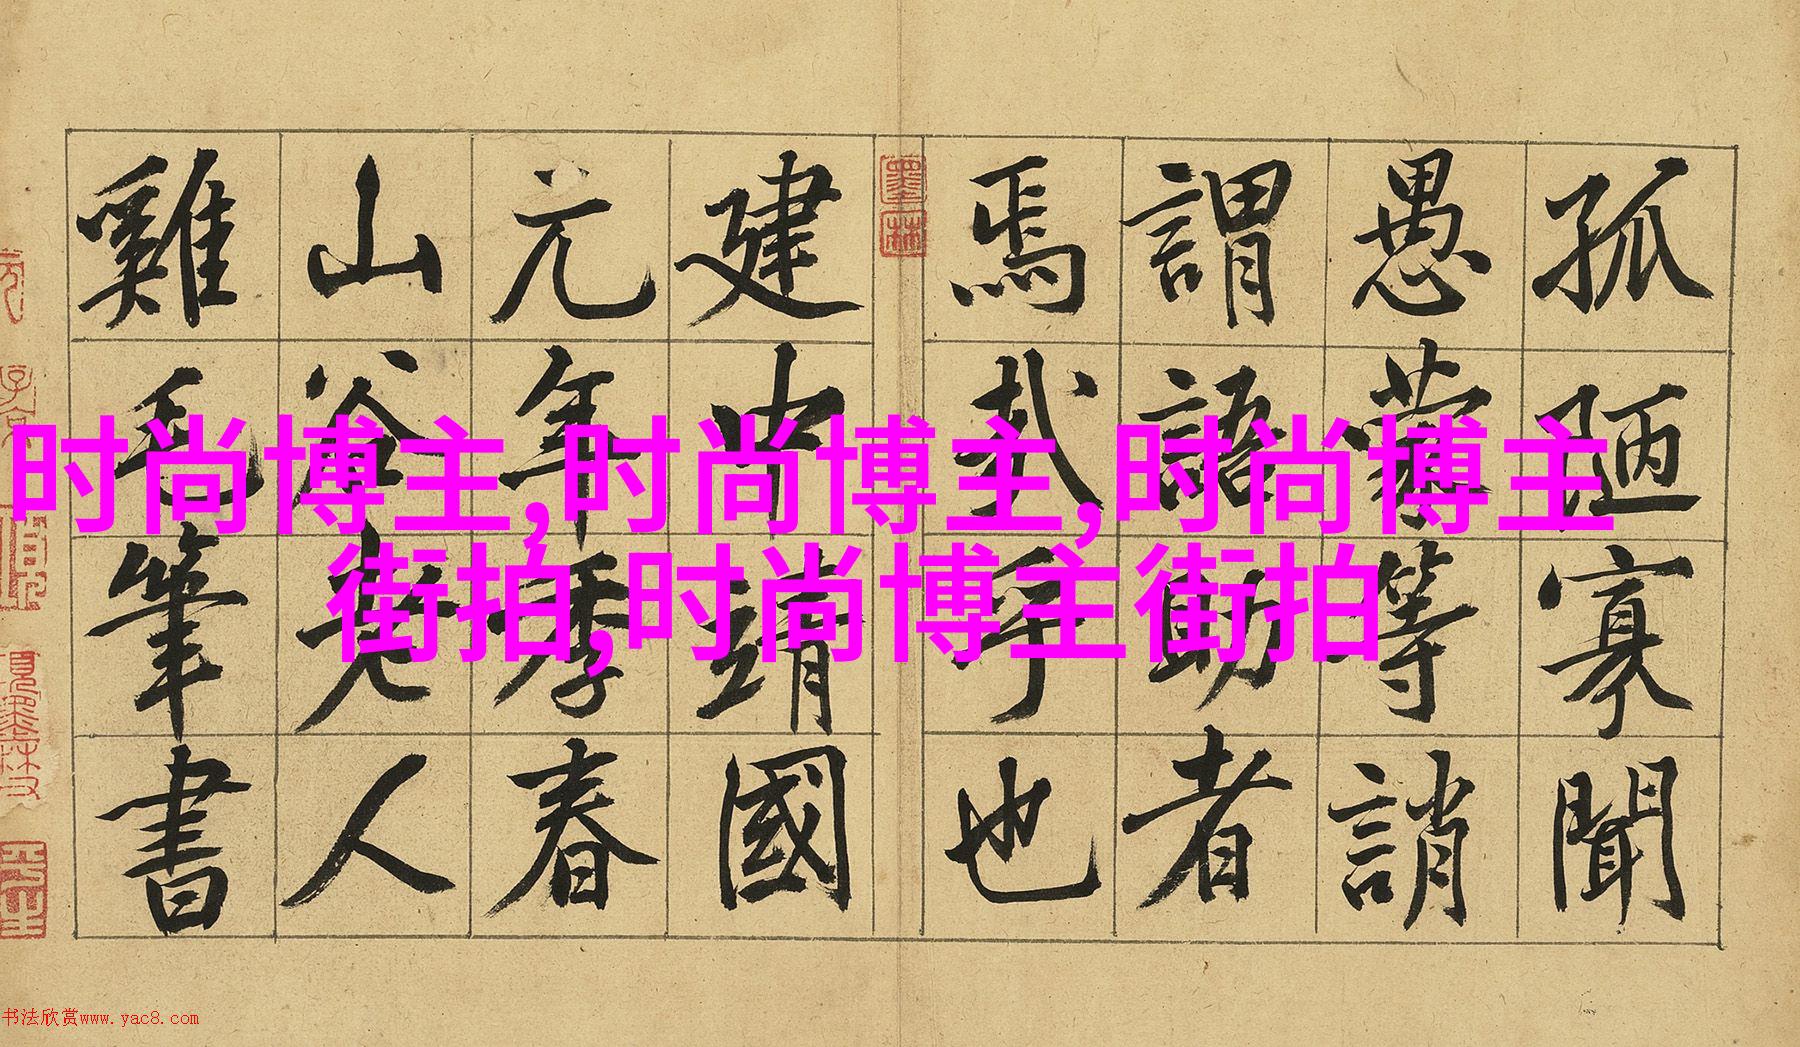 孤陋寡聞
愚蒙等誚
謂語助者
焉哉乎也
墨林
建中靖國
元年季春
山谷老人
雞毛筆書
时尚博主,时尚博主,时尚博主
街拍,时尚博主街拍
书法欣赏www.yac8.com